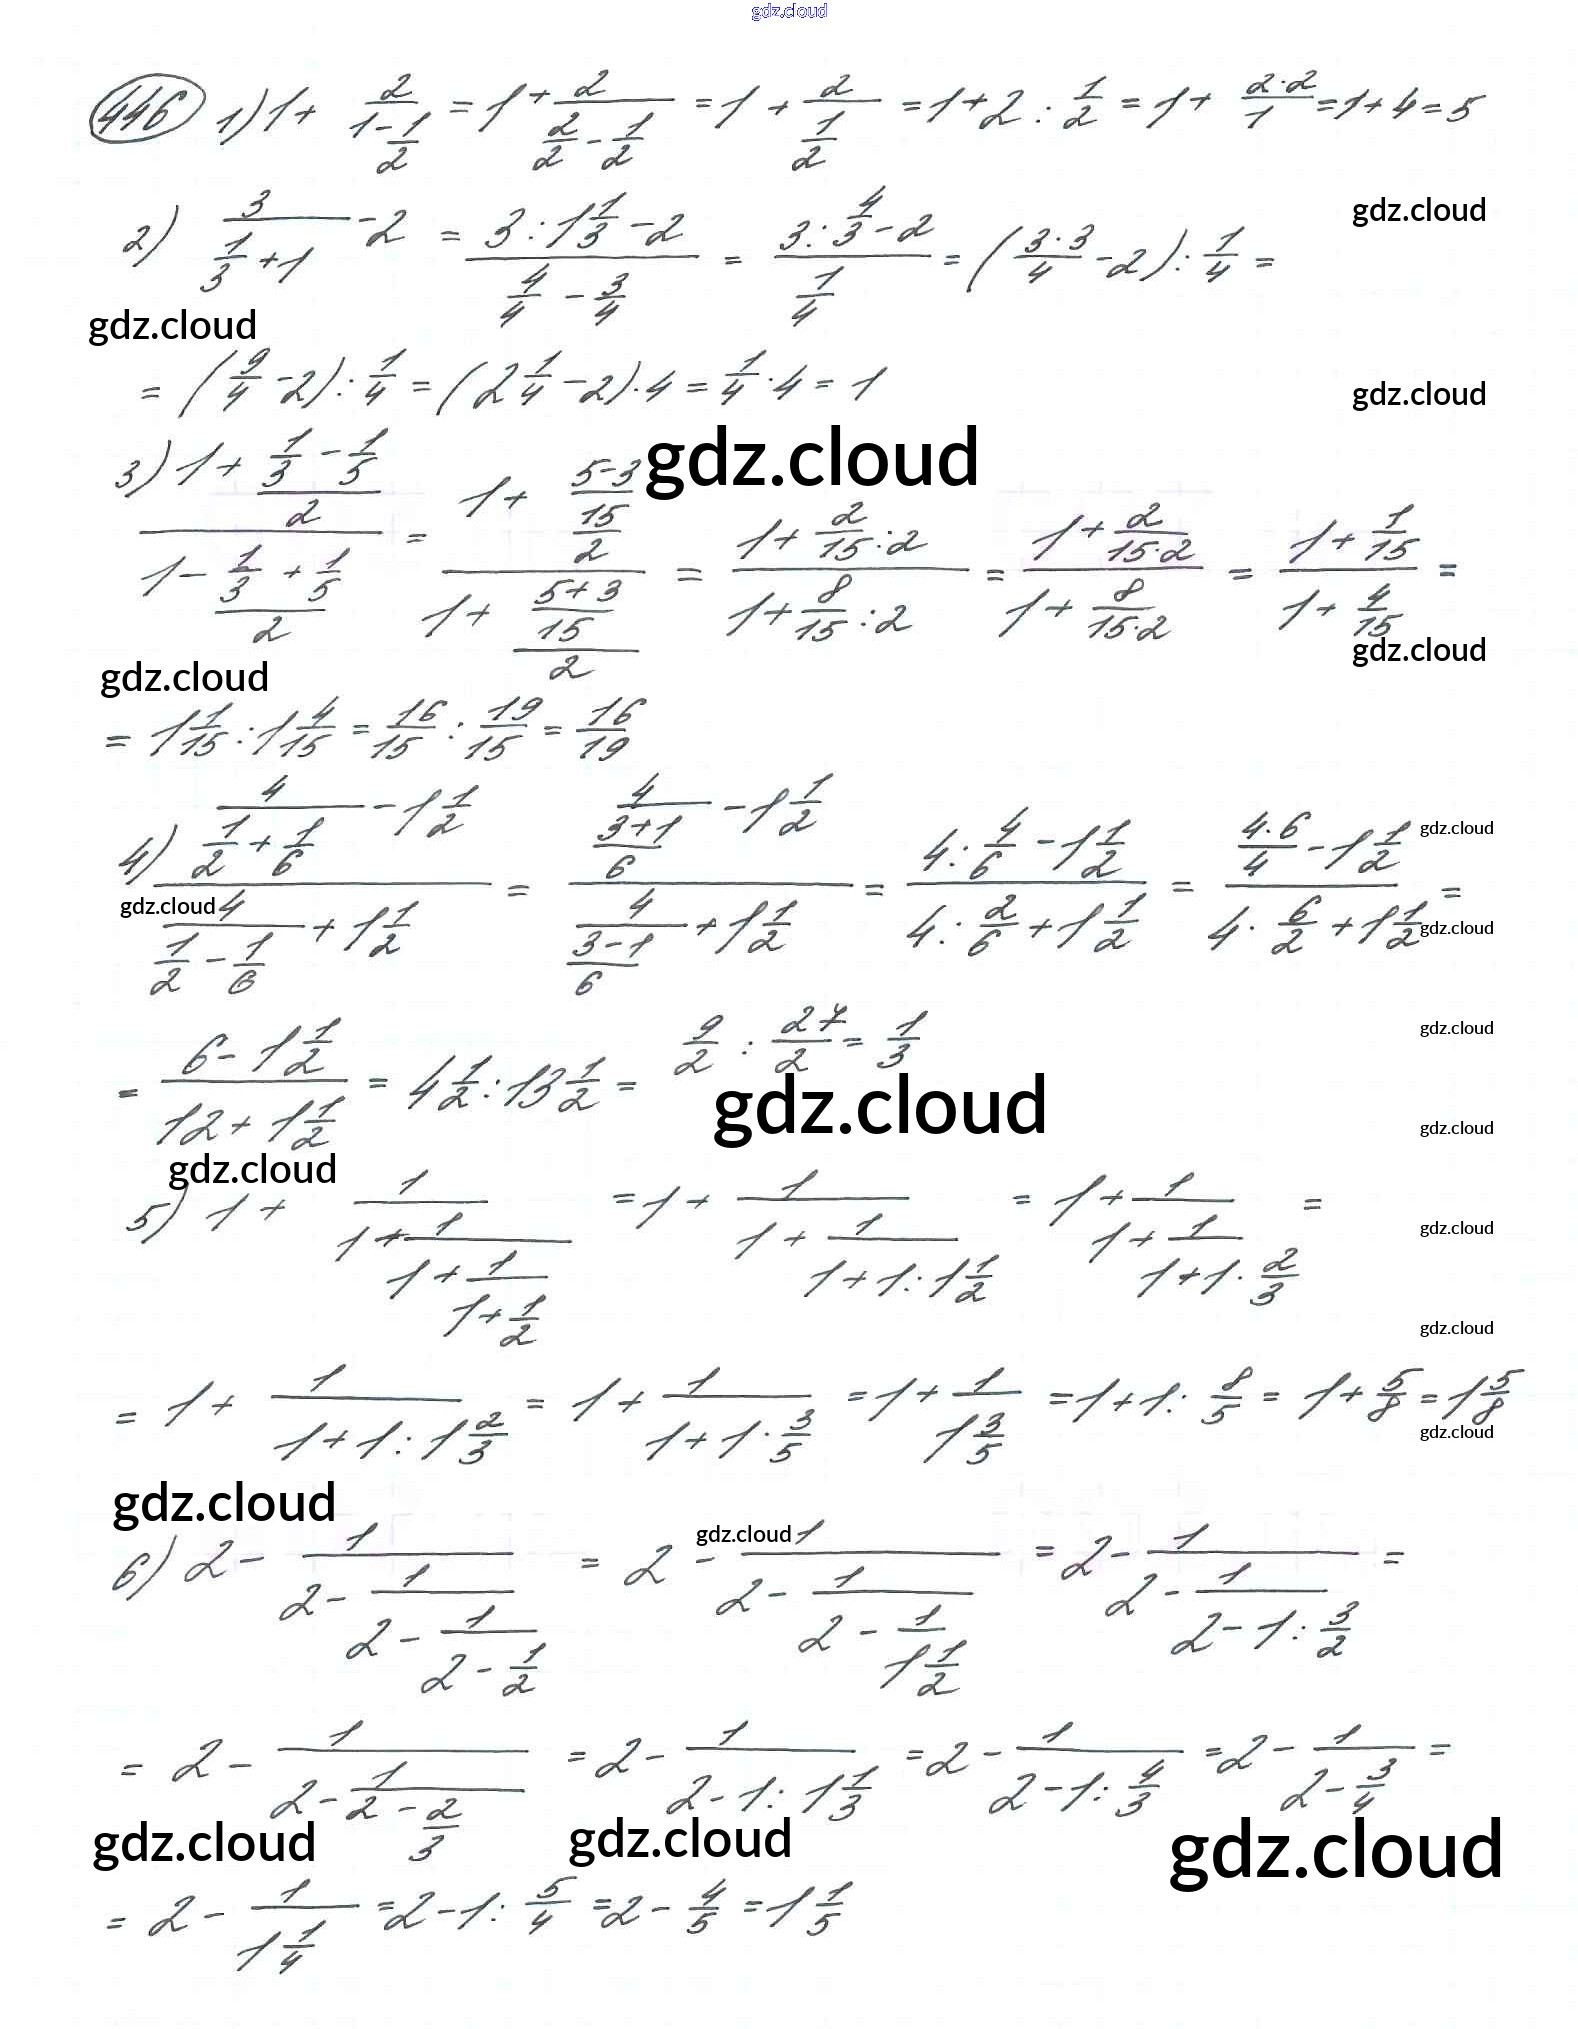 gdz.cloud
446 1) 1 + 2/(1 - 1/2) = 1 + 2/(2/2 - 1/2) = 1 + 2/(1/2) = 1 + 2 : 1/2 = 1 + (2·2)/1 = 1 + 4 = 5
gdz.cloud
2) 3/(1/3 + 1) - 2 = (3 : 1 1/3 - 2)/(4/4 - 3/4) = (3 : 4/3 - 2)/(1/4) = ((3·3)/4 - 2) : 1/4 =
gdz.cloud
= (9/4 - 2) : 1/4 = (2 1/4 - 2)·4 = 1/4 · 4 = 1
gdz.cloud
gdz.cloud
3) (1 + (1/3 - 1/5)/2)/(1 - (1/3 + 1/5)/2) = (1 + ((5-3)/15)/2)/(1 + ((5+3)/15)/2) = (1 + 2/15 : 2)/(1 + 8/15 : 2) = (1 + 2/(15·2))/(1 + 8/(15·2)) = (1 + 1/15)/(1 + 4/15) =
gdz.cloud
gdz.cloud
= 1 1/15 : 1 4/15 = 16/15 : 19/15 = 16/19
4) (4/(1/2 + 1/6) - 1 1/2)/(4/(1/2 - 1/6) + 1 1/2) = (4/((3+1)/6) - 1 1/2)/(4/((3-1)/6) + 1 1/2) = (4 : 4/6 - 1 1/2)/(4 : 2/6 + 1 1/2) = ((4·6)/4 - 1 1/2)/(4 · 6/2 + 1 1/2) =
gdz.cloud
gdz.cloud
gdz.cloud
= (6 - 1 1/2)/(12 + 1 1/2) = 4 1/2 : 13 1/2 = 9/2 : 27/2 = 1/3
gdz.cloud
gdz.cloud
gdz.cloud
gdz.cloud
5) 1 + 1/(1 + 1/(1 + 1/(1 + 1/2))) = 1 + 1/(1 + 1/(1 + 1 : 1 1/2)) = 1 + 1/(1 + 1/(1 + 1 · 2/3)) =
gdz.cloud
gdz.cloud
= 1 + 1/(1 + 1 : 1 2/3) = 1 + 1/(1 + 1 · 3/5) = 1 + 1/(1 3/5) = 1 + 1 : 8/5 = 1 + 5/8 = 1 5/8
gdz.cloud
gdz.cloud
gdz.cloud
6) 2 - 1/(2 - 1/(2 - 1/(2 - 1/2))) = 2 - 1/(2 - 1/(2 - 1/(1 1/2))) = 2 - 1/(2 - 1/(2 - 1 : 3/2)) =
= 2 - 1/(2 - 1/(2 - 2/3)) = 2 - 1/(2 - 1 : 1 1/3) = 2 - 1/(2 - 1 : 4/3) = 2 - 1/(2 - 3/4) =
gdz.cloud
gdz.cloud
gdz.cloud
= 2 - 1/(1 1/4) = 2 - 1 : 5/4 = 2 - 4/5 = 1 1/5